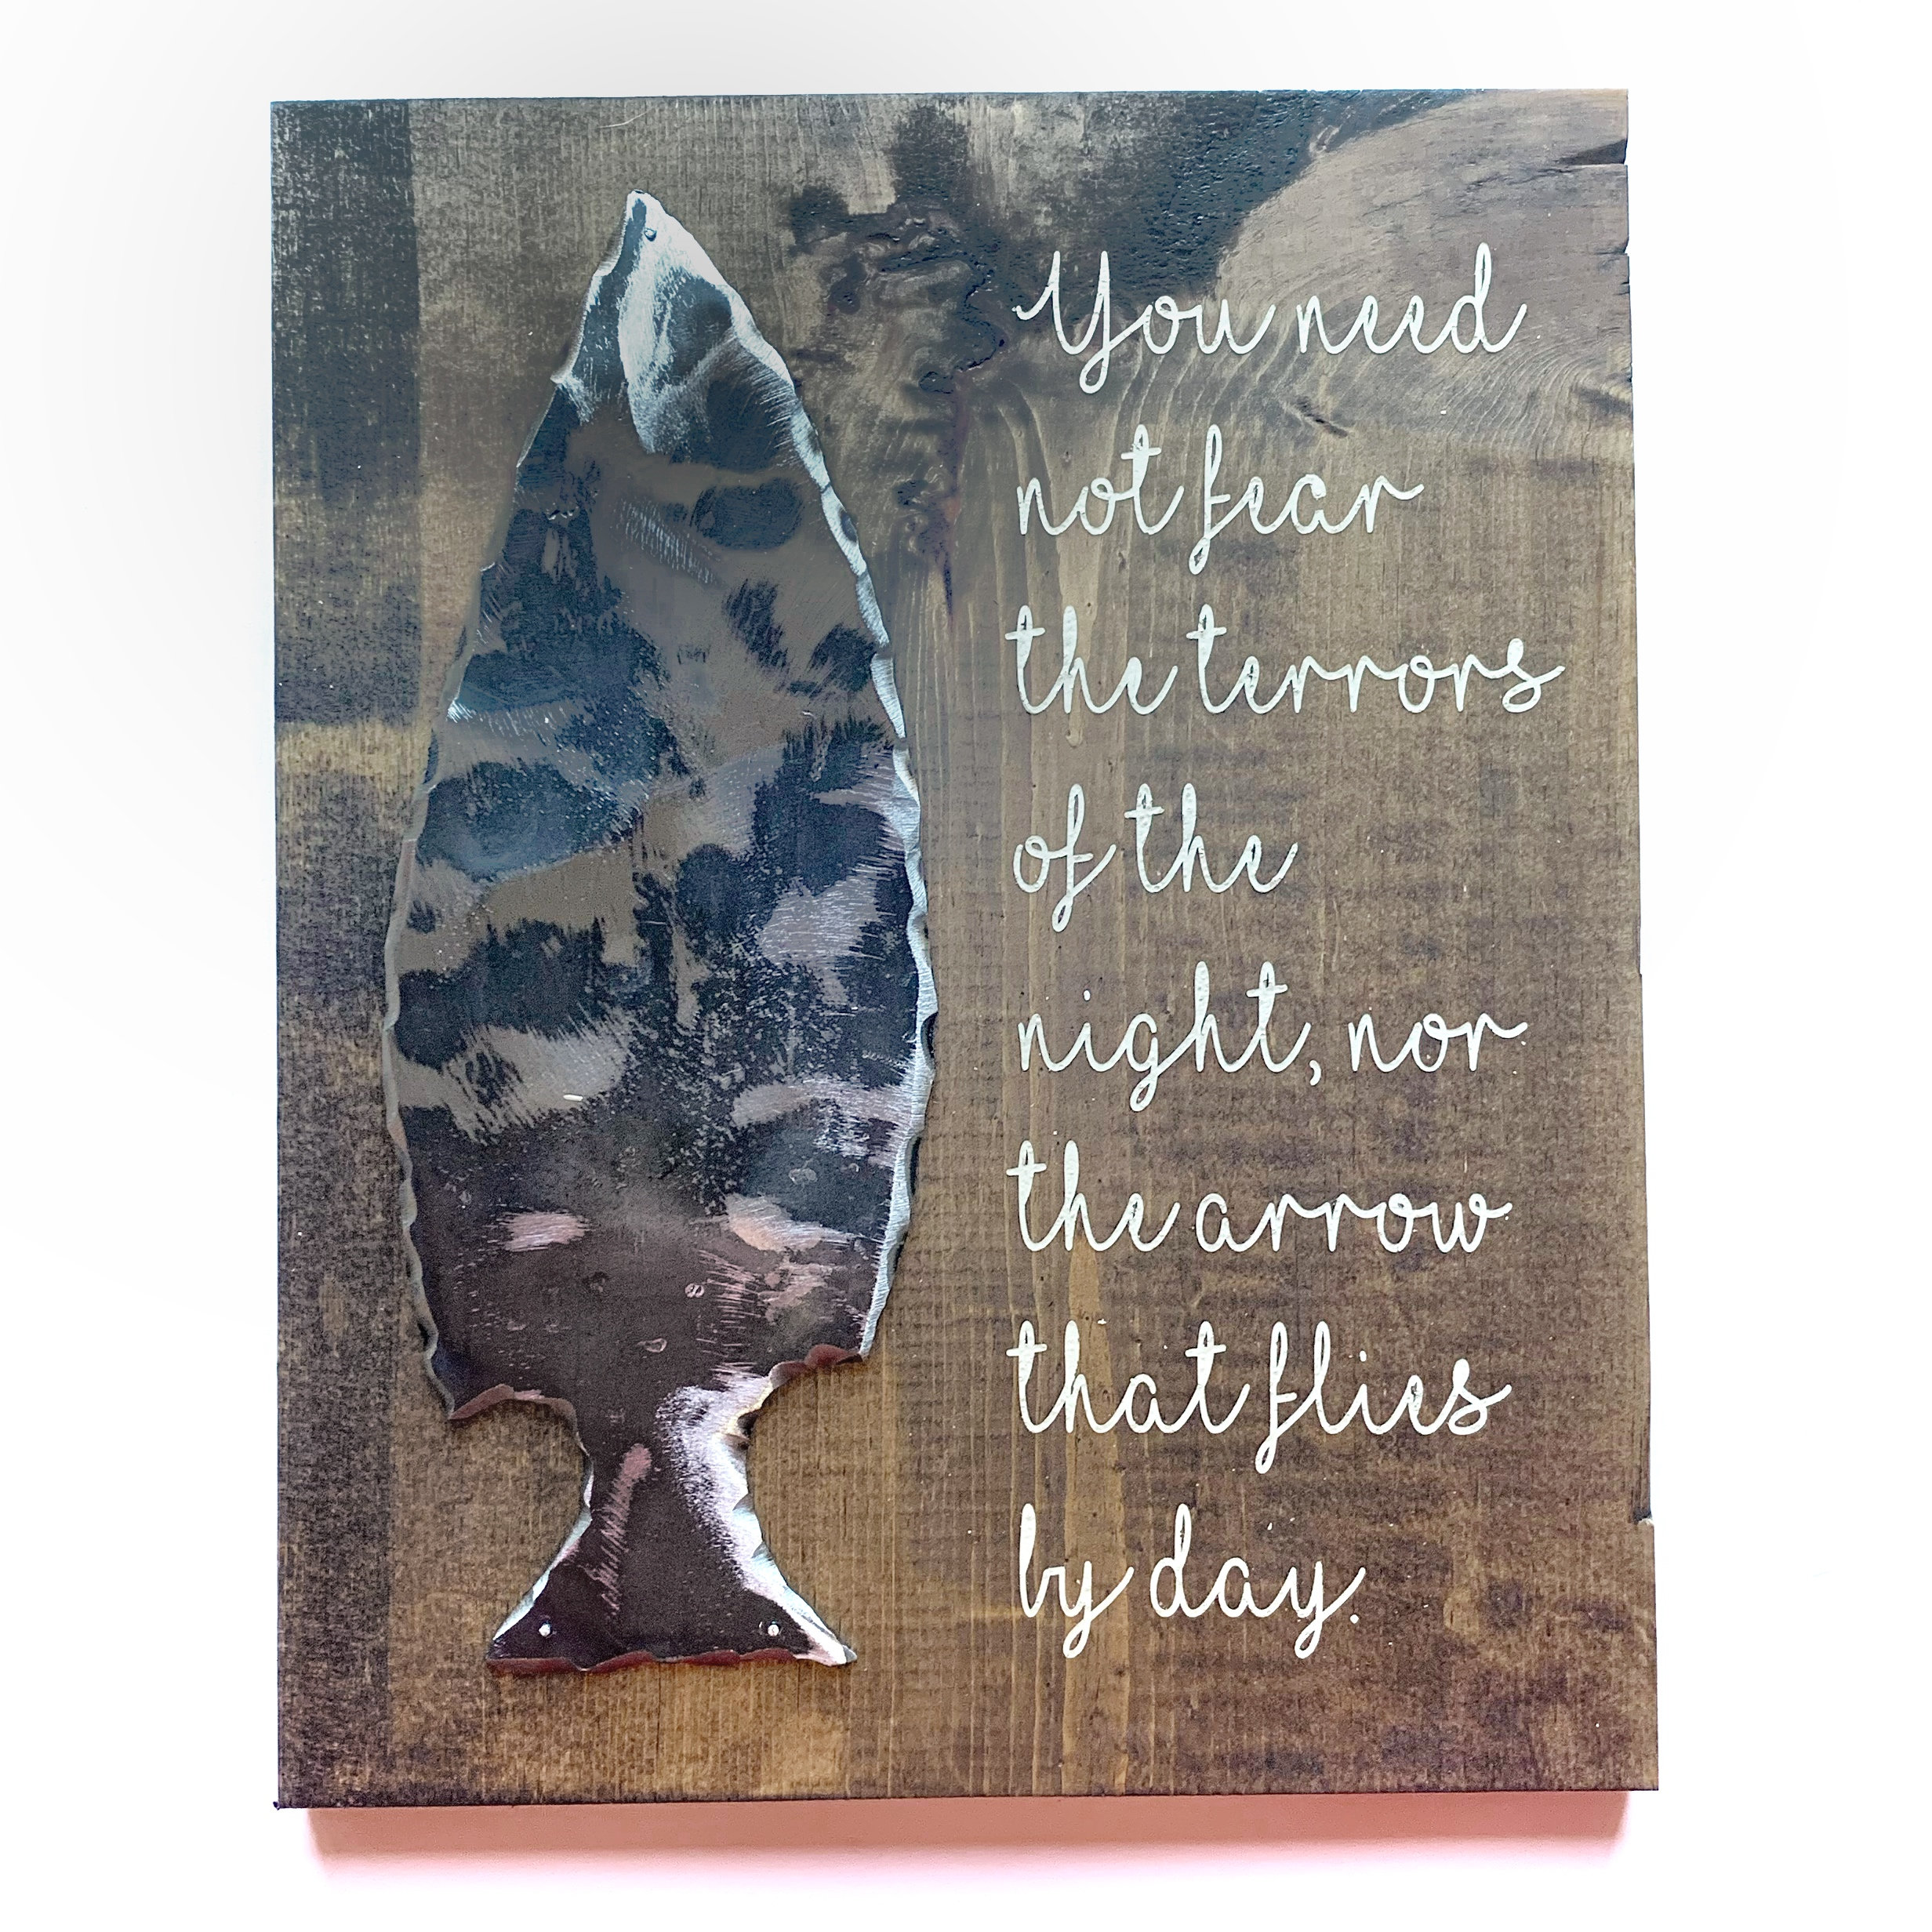 You need
not fear
the terrors
of the
night, nor
the arrow
that flies
by day.